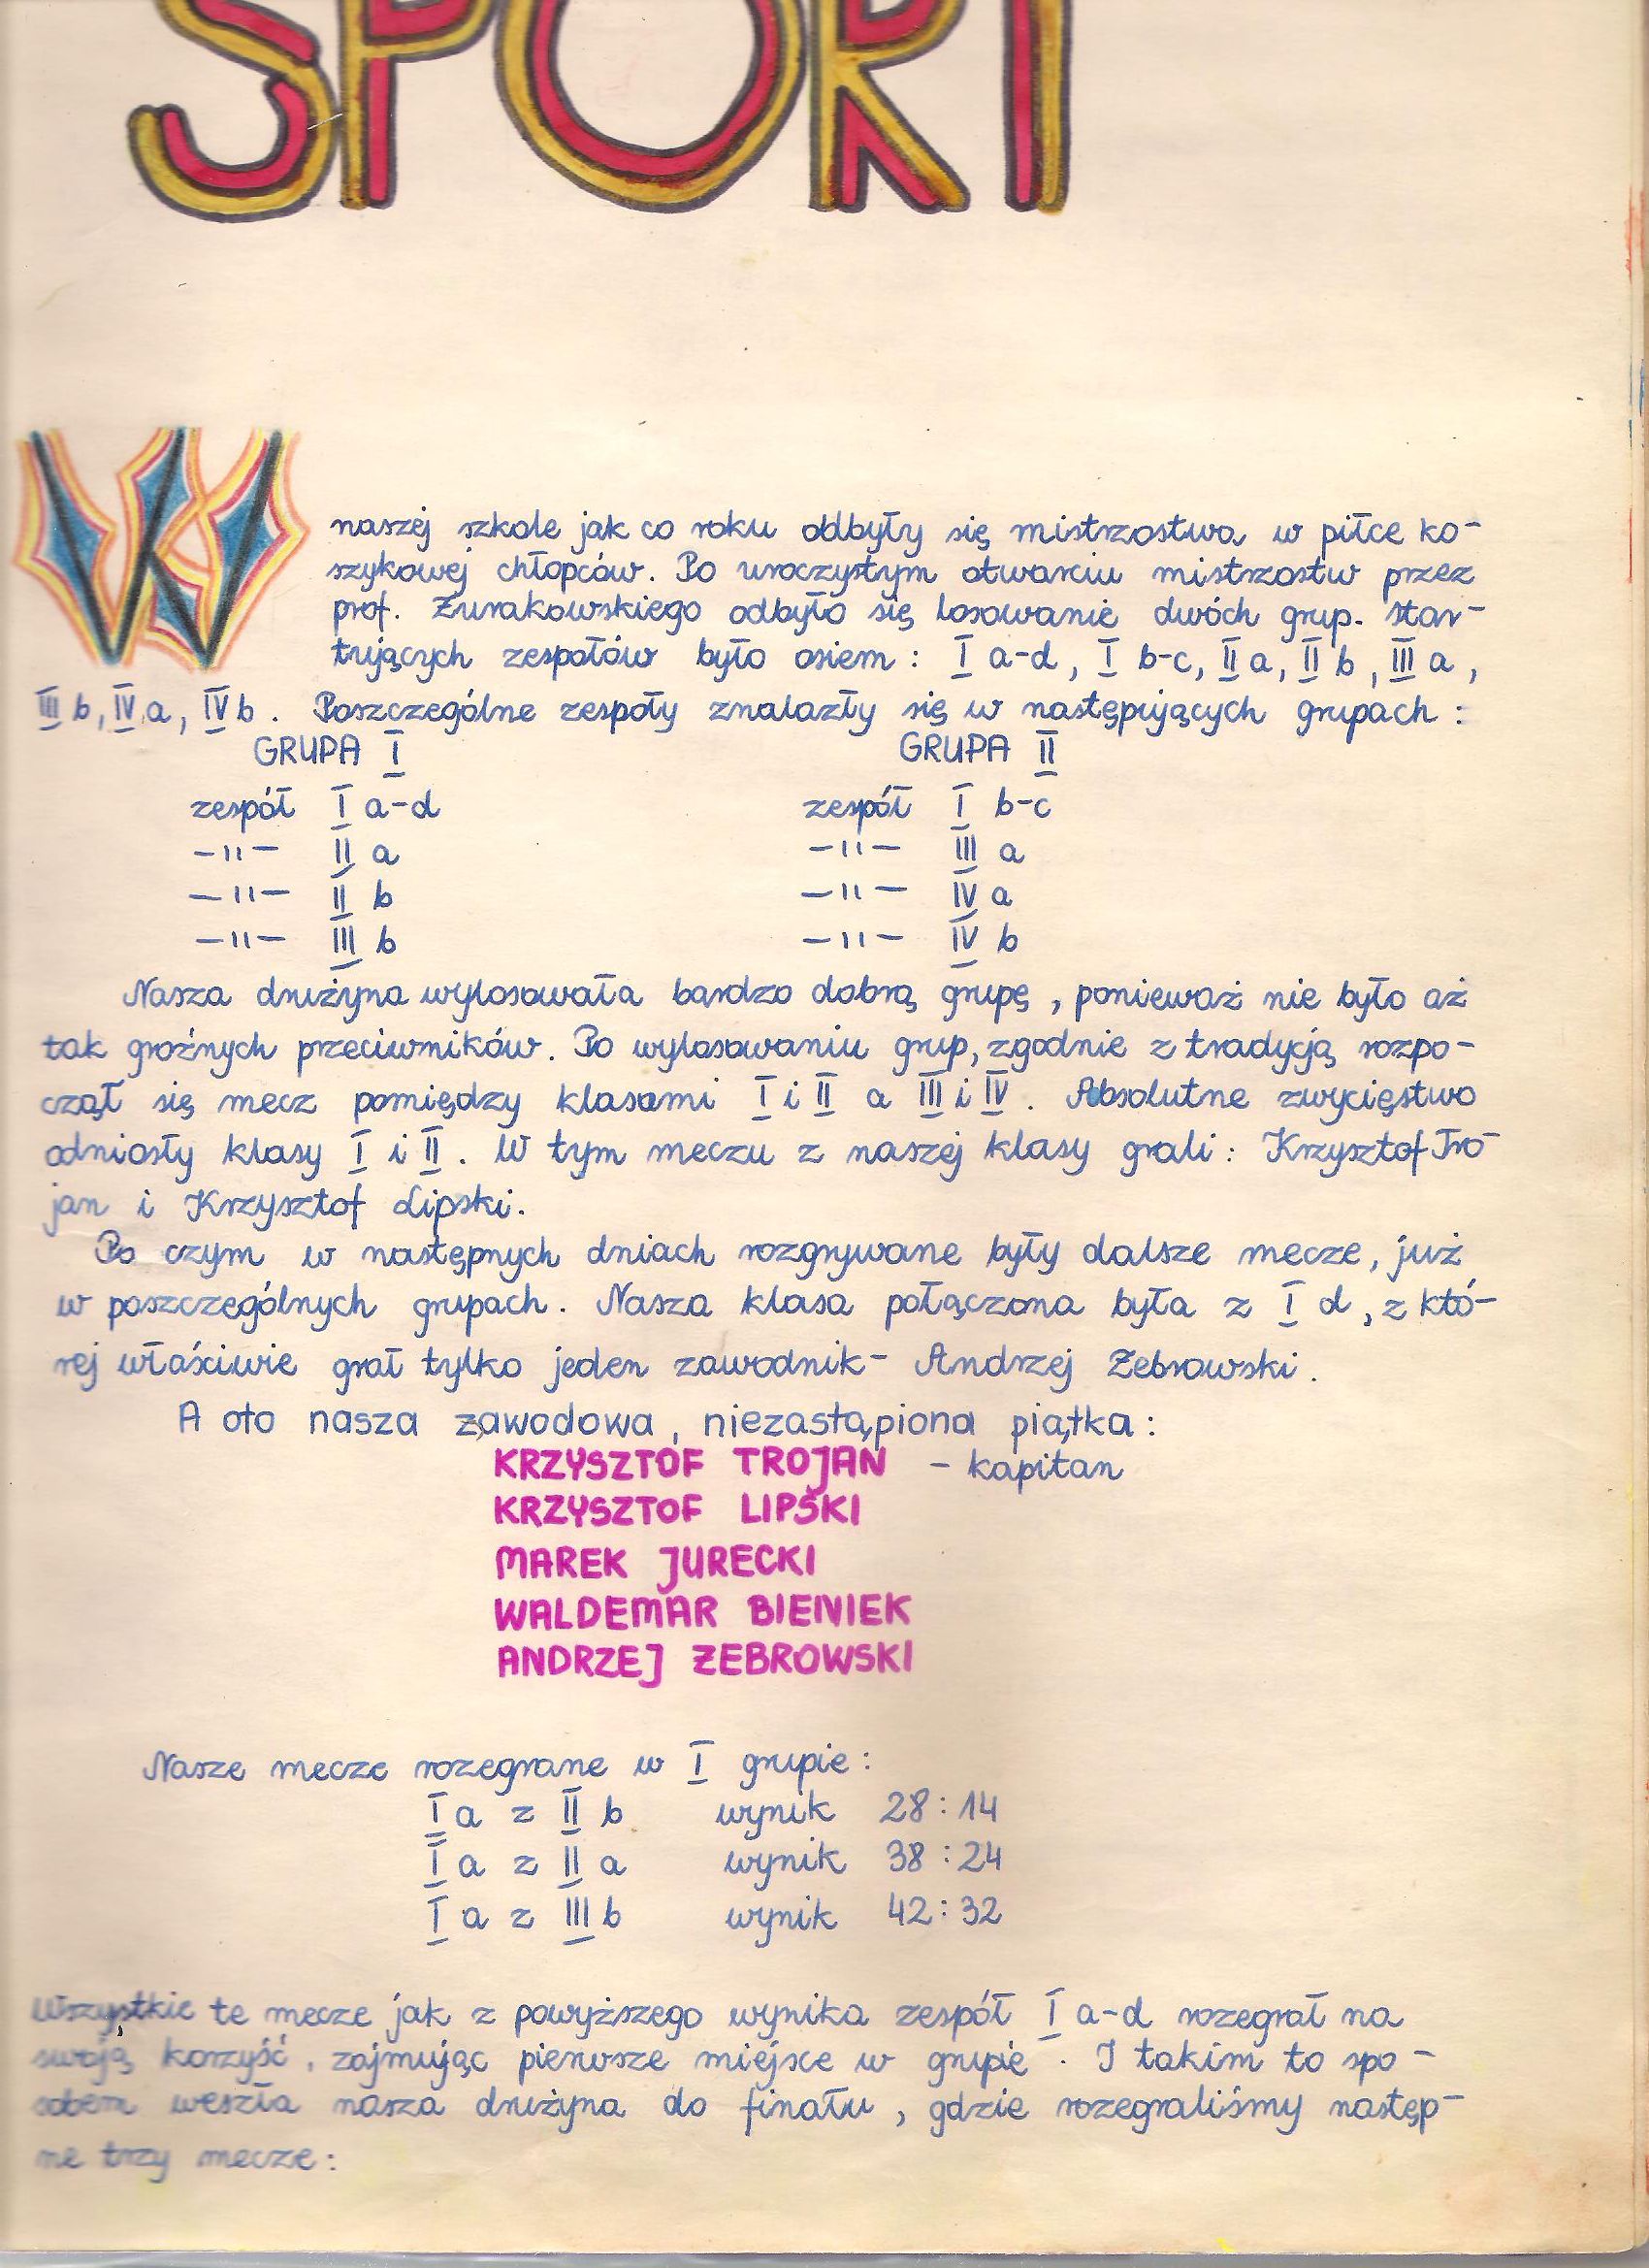 SPORT
W naszej szkole jak co roku odbyły się mistrzostwa w piłce ko-
szykowej chłopców. Po uroczystym otwarciu mistrzostw przez
prof. Żurakowskiego odbyło się losowanie dwóch grup. Star-
tujących zespołów było osiem : I a-d, I b-c, II a, II b, III a,
III b, IV a, IV b. Poszczególne zespoły znalazły się w następujących grupach :
GRUPA I GRUPA II
zespół I a-d zespół I b-c
—"— II a —"— III a
—"— II b —"— IV a
—"— III b —"— IV b
Nasza drużyna wylosowała bardzo dobrą grupę, ponieważ nie było aż
tak groźnych przeciwników. Po wylosowaniu grup, zgodnie z tradycją rozpo-
czął się mecz pomiędzy klasami I i II a III i IV. Absolutne zwycięstwo
odniosły klasy I i II. W tym meczu z naszej klasy grali : Krzysztof Tro-
jan i Krzysztof Lipski.
Po czym w następnych dniach rozgrywane były dalsze mecze, już
w poszczególnych grupach. Nasza klasa połączona była z I d, z któ-
rej właściwie grał tylko jeden zawodnik - Andrzej Żebrowski.
A oto nasza zawodowa, niezastąpiona piątka :
KRZYSZTOF TROJAN - kapitan
KRZYSZTOF LIPSKI
MAREK JURECKI
WALDEMAR BIENIEK
ANDRZEJ ŻEBROWSKI
Nasze mecze rozegrane w I grupie :
I a z II b wynik 28 : 14
I a z II a wynik 38 : 24
I a z III b wynik 42 : 32
Wszystkie te mecze jak z powyższego wynika zespół I a-d rozegrał na
swoją korzyść, zajmując pierwsze miejsce w grupie. I takim to spo-
sobem weszła nasza drużyna do finału, gdzie rozegraliśmy następ-
ne trzy mecze :